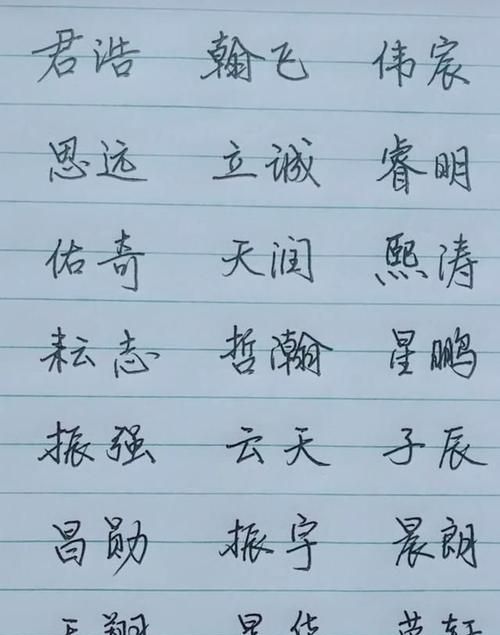 君浩 翰飞 伟宸
思远 立诚 睿明
佑奇 天润 熙涛
耘志 哲瀚 星鹏
振强 云天 子辰
昌勋 振宇 晨朗